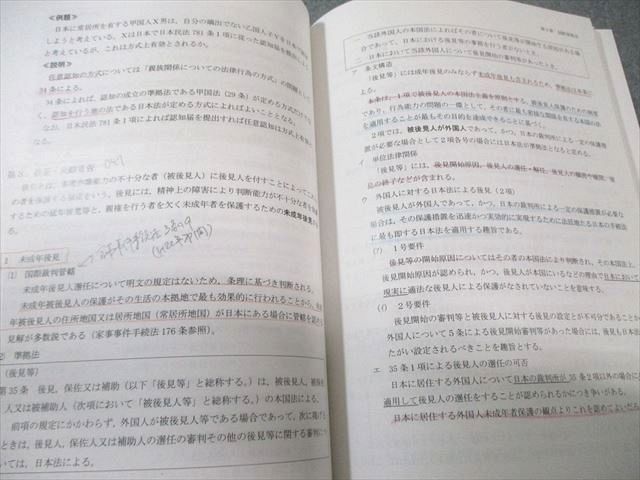 ≪例題≫
日本に常居所を有する甲国人Ｘ男は、自分の嫡出でない乙国人子Ｙを日本で認知
しようと考えている。Ｘは日本で日本民法781条1項に従った認知届を
と考えているが、これは方式上有効とされるか。
≪説明≫
任意認知の方式については「親族関係についての法律行為の方式」の問題として
34条による。
34条によれば、認知の成立の準拠法である甲国法（29条）が定める方式だけでな
く、認知を行う地の法である日本法が定める方式によればよいこととなる。
なお、日本民法781条1項によれば認知届を提出すれば任意認知は方式上有効と
なる。
後見とは、年齢や能力の不十分な者（被後見人）に後見人を付すことによって
の者を保護する制度をいう。後見には、精神上の障害により判断能力が不十分な者を
するための成年後見等と、親権を行う者を欠く未成年者を保護するための未成年後見
1 未成年後見
(1) 国際裁判管轄
未成年後見人選任について明文の規定はないため、条理に基づき判断される。
未成年被後見人の保護がその生活の本拠地で最も効果的に行われることから、
年被後見人の住所地国又は居所地国（常居所地国）が日本にある場合に管轄を認める
見解が多数説である（家事事件手続法176条参照）。
2) 準拠法
（後見等）
第35条 後見、保佐又は補助（以下「後見等」と総称する。）は、被後見人、被保佐
人又は被補助人（次項において「被後見人等」と総称する。）の本国法による。
前項の規定にかかわらず、外国人が被後見人等である場合であって、次に掲げる
ときは、後見人、保佐人又は補助人の選任の審判その他の後見等に関する審判につ
いては、日本法による。
一 当該外国人の本国法によればその者について後見等が開始する原因がある場
合であって、日本における後見等の事務を行う者がないとき。
二 日本において当該外国人について後見開始の審判等があったとき。
ア 条文構造
「後見等」には成年後見のみならず未成年後見も含まれるため、準拠法は本条に
本条は、1項で被後見人の本国法主義を原則とする。
であり、行為能力の問題の一環として、その者に最も密接な関係を有する本国の法
を適用することが最もその目的を達成できることに基づく。
2項では、被後見人が外国人であって、かつ、日本の裁判所による一定の保護措
置が必要な場合として2項各号の場合には日本法が準拠法となると定める。
イ 単位法律関係
「後見等」には、後見開始原因、後見人の選任・解任、後見人の権限や職務、後
見の終了などが含まれる。
ウ 外国人に対する日本法による後見（2項）
被後見人が外国人であって、かつ、日本の裁判所による一定の保護措置が必要な
場合は、その保護措置を迅速かつ実効的に実現するために法廷地たる日本の手続法
に最も即する日本法を適用する趣旨である。
(ｱ) 1号要件
後見等の開始原因についてはその者の本国法により判断され、その本国法上、
後見開始の原因が認められ、かつ、後見人が本国にいるなどの理由で日本において
現実に適法な後見人による保護がなされていないことを意味する。
(ｲ) 2号要件
後見開始の審判と後見人に対する後見の設定とが不可分であることか
外国人について5条による後見開始審判等があった場合には、後見も日本法
たがい設定されるべきことを趣旨とする。
エ 35条1項による後見人の選任の可否
日本に居住する外国人について日本の裁判所が35条2項以外の場合に
適用して後見人の選任をすることが認められるかにつき争いがある。
日本に居住する外国人未成年者保護の観点よりこれを認めてよいだろ